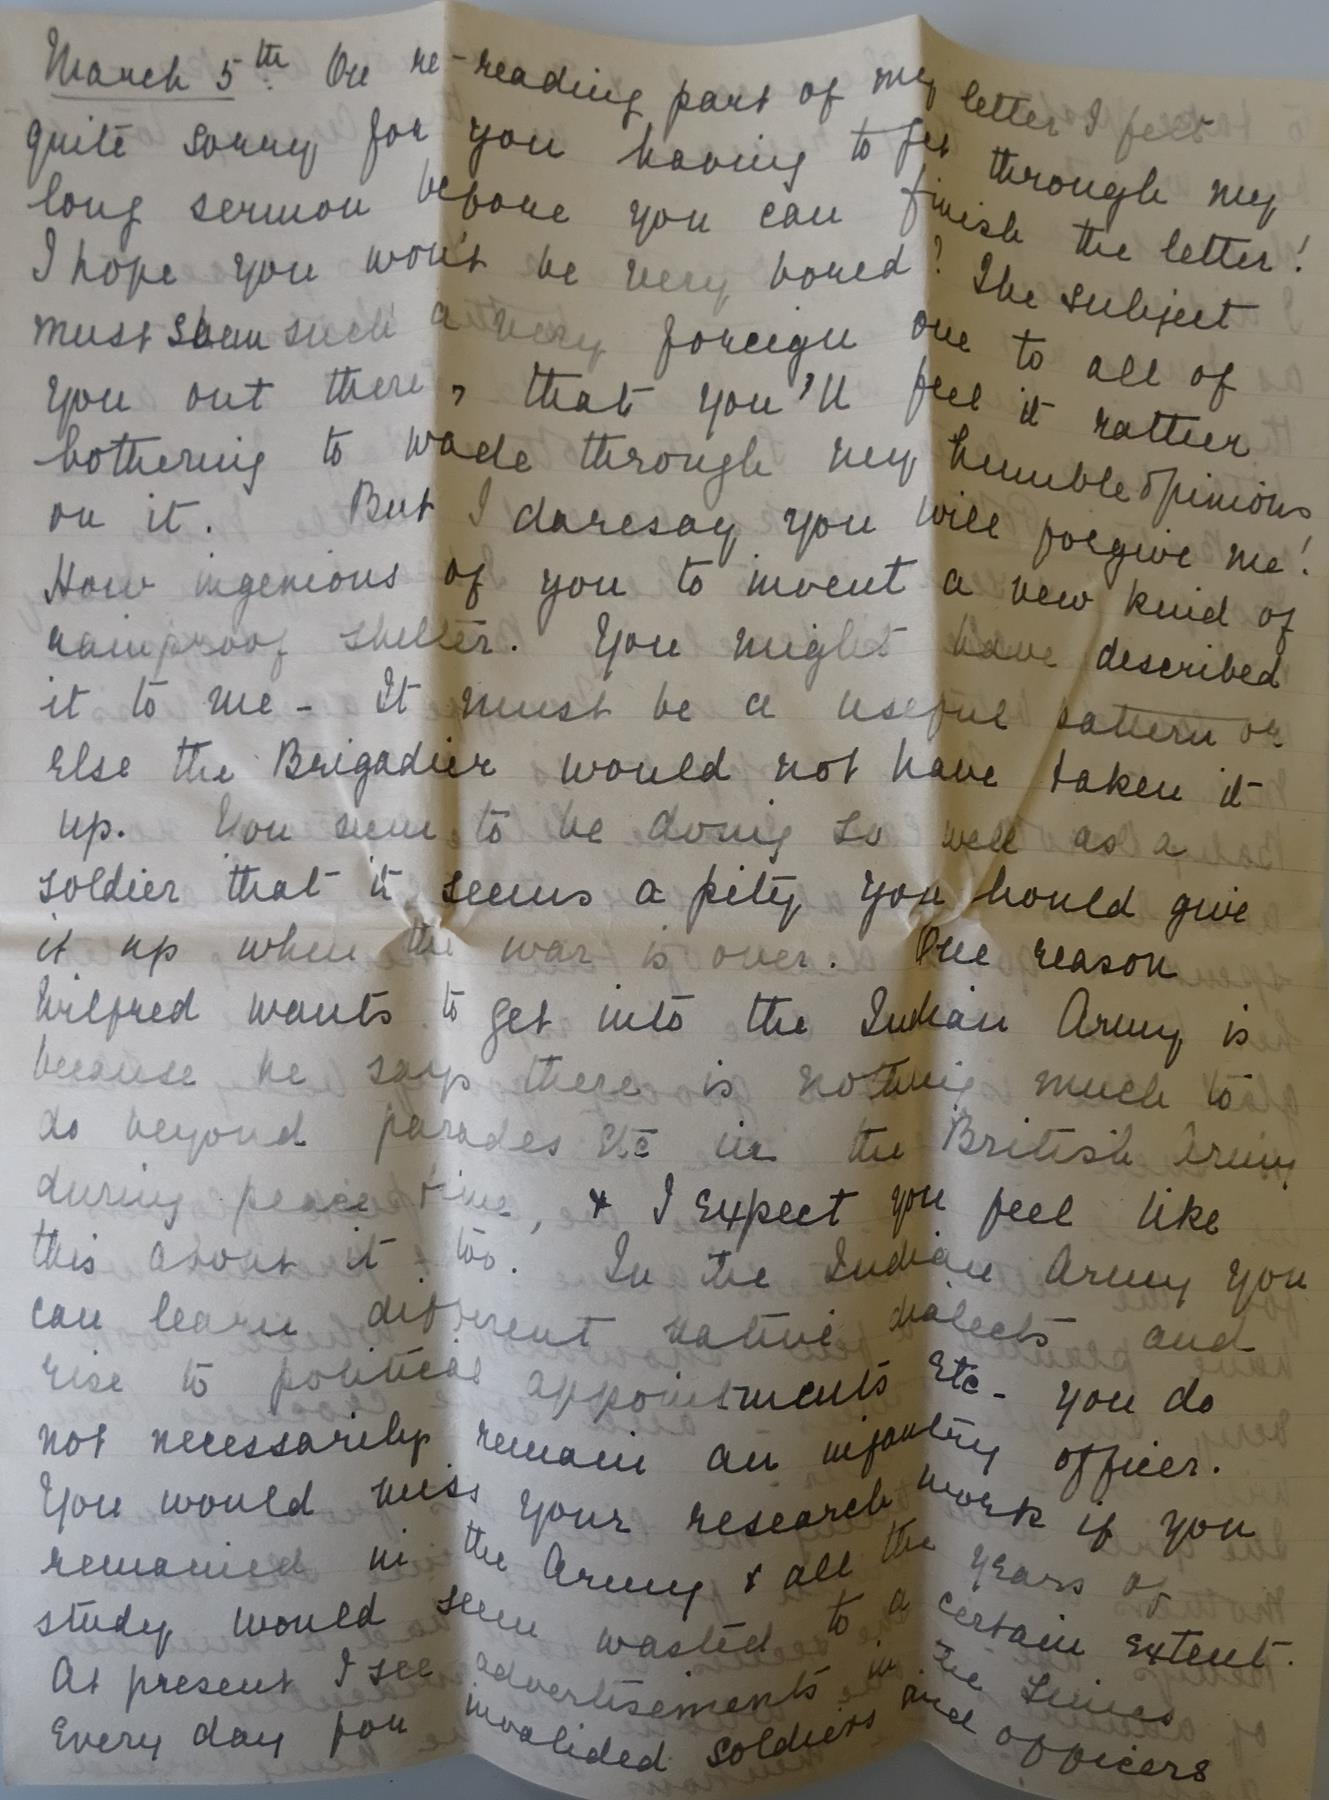 March 5th. On re-reading part of my letter I feel
quite sorry for you having to get through my
long sermon before you can finish the letter!
I hope you won't be very bored? The subject
must seem such a very foreign one to all of
you out there, that you'll feel it rather
bothering to wade through my humble opinions
on it. But I daresay you will forgive me!
How ingenious of you to invent a new kind of
rainproof shelter. You might have described
it to me - It must be a useful pattern or
else the Brigadier would not have taken it
up. You seem to be doing so well as a
soldier that it seems a pity you should give
it up when the war is over. One reason
Wilfred wants to get into the Indian Army is
because he says there is nothing much to
do beyond parades etc in the British Army
during peace time, & I expect you feel like
this about it too. In the Indian Army you
can learn different native dialects and
rise to political appointments etc - you do
not necessarily remain an infantry officer.
You would miss your research work if you
remained in the Army & all the years of
study would seem wasted to a certain extent.
At present I see advertisements in the Times
every day for invalided soldiers and officers